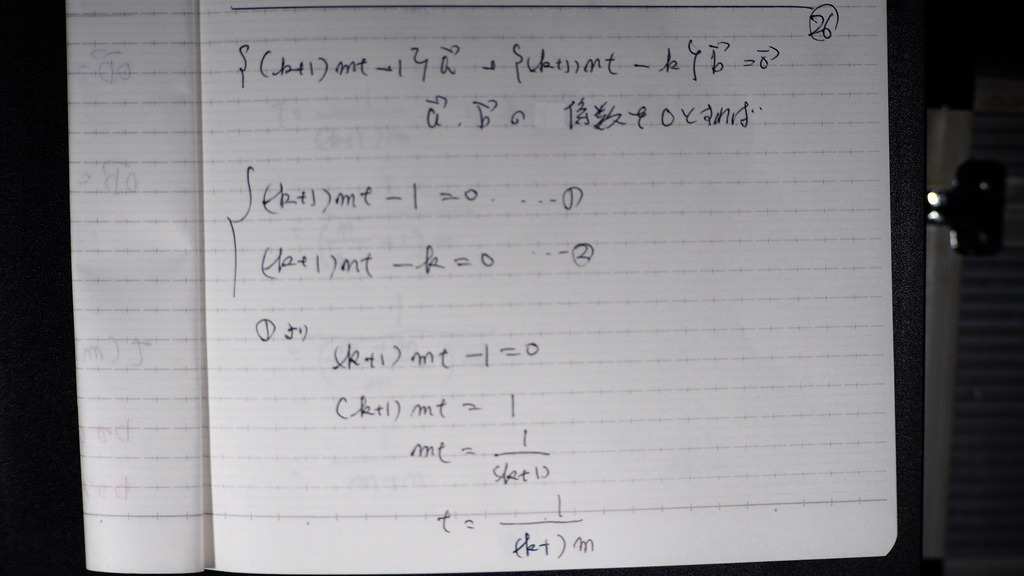 ㉖
{(k+1)mt-1}a⃗ + {(k+1)mt - k}b⃗ = 0⃗
a⃗, b⃗ の 係数を 0とすれば
(k+1)mt - 1 = 0 ····①
(k+1)mt - k = 0 ···②
①より
(k+1)mt - 1 = 0
(k+1)mt = 1
mt = 1/(k+1)
t = 1/(k+)m